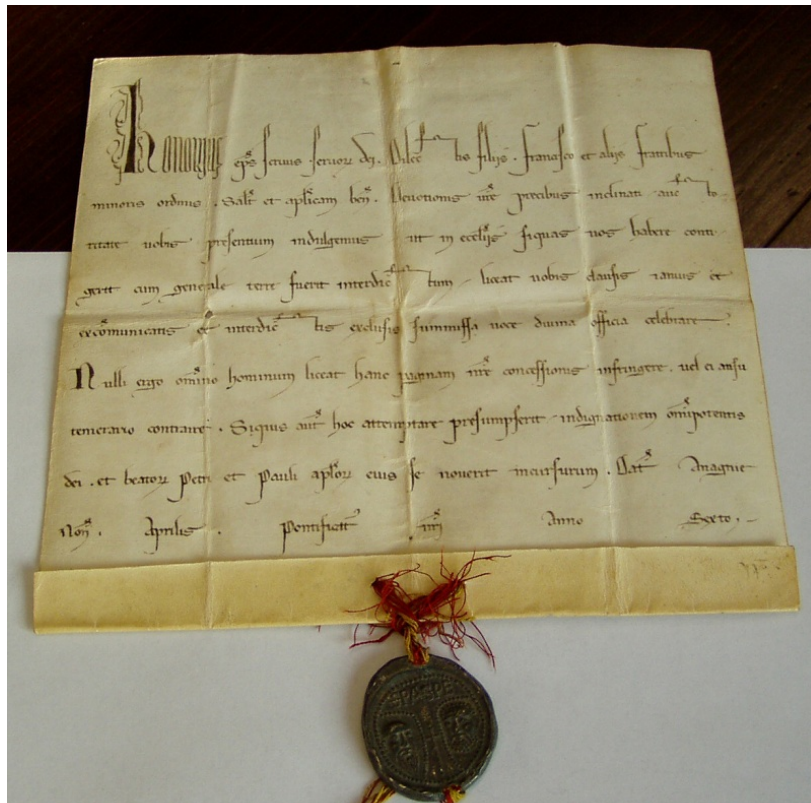 Honorius eps servus servor dei. Dilectis filiis. Francisco et aliis fratribus
minoris ordinis. Salt et aplicam ben. Devotionis vre precibus inclinati auc to
ritate vobis presentium indulgemus ut in ecclijs siquas vos habere conti
gerit cum generale terre fuerit interdic tum liceat vobis clausis ianuis et
excomunicatis et interdic tis exclusis summissa voce divina officia celebrare.
Nulli ergo omnino hominum liceat hanc paginam nre concessionis infringere. vel ei ausu
temerario contraire. Siquis aut hoc attemptare presumpserit indignationem omipotentis
dei. et beator Petri et Pauli aplor eius se noverit incursurum. Dat Anagnie
Non. Aprilis. Pontificat nri Anno Sexto.
SPASPE